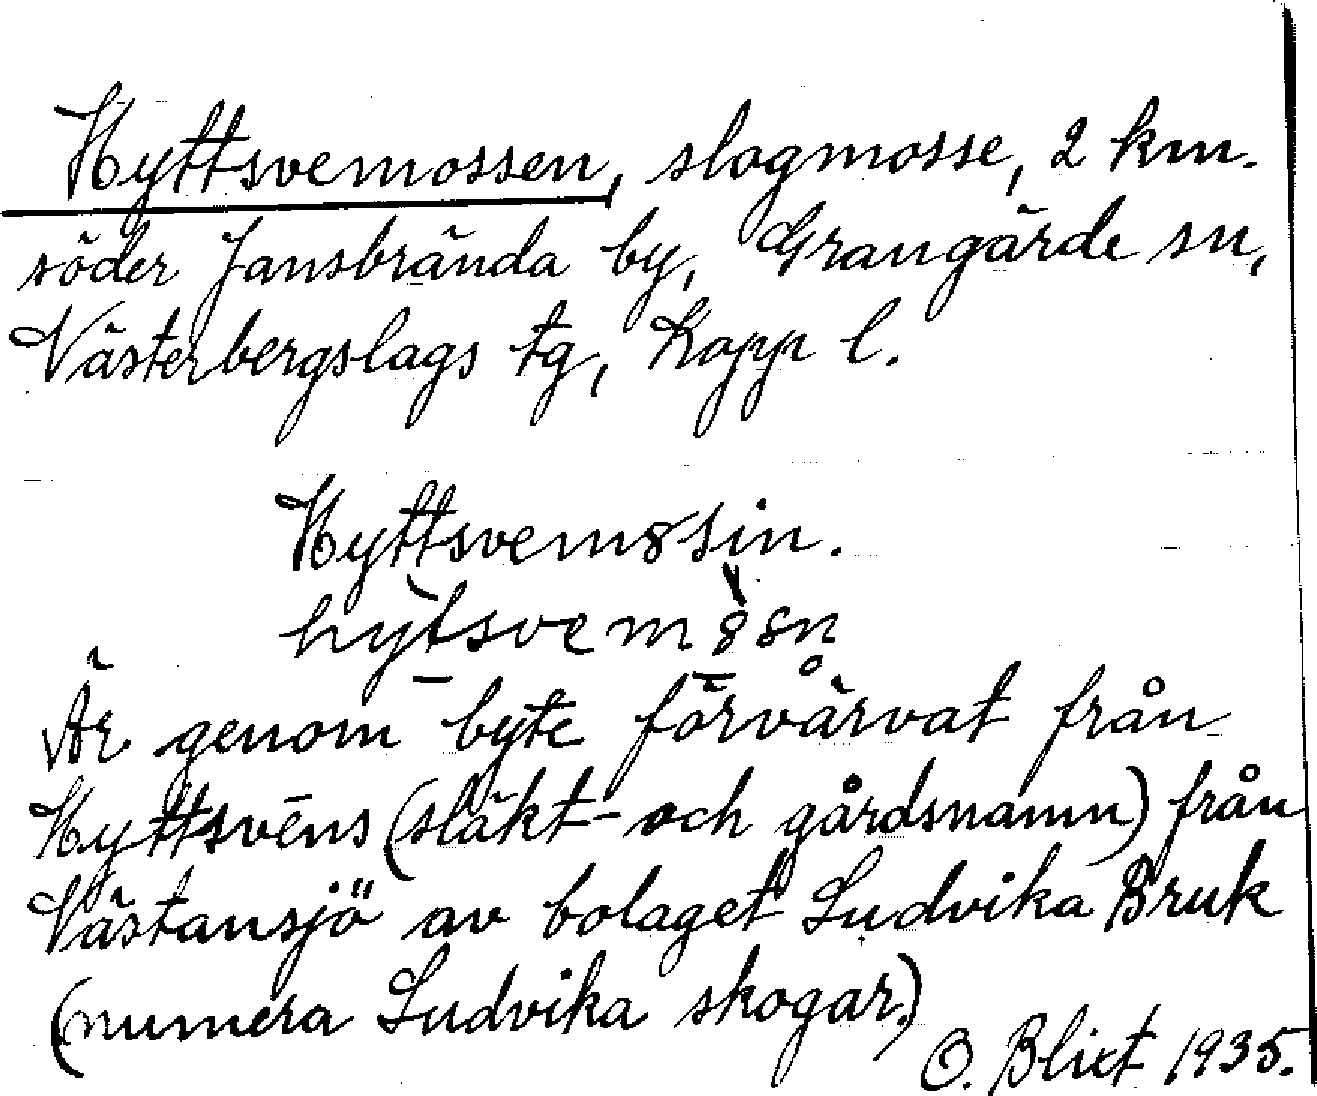 Hyttsvemossen, slogmosse, 2 km.
söder Jansbrända by, Grangärde sn,
Västerbergslags tg, Kopp l.
Hyttsvem8sin.
hỳtsvem8̀sn̥
Är genom byte förvärvat från
Hyttsvēns (släkt- och gårdsnamn) från
Västansjö av bolaget Ludvika Bruk
(numera Ludvika skogar.)
O. Blixt 1935.